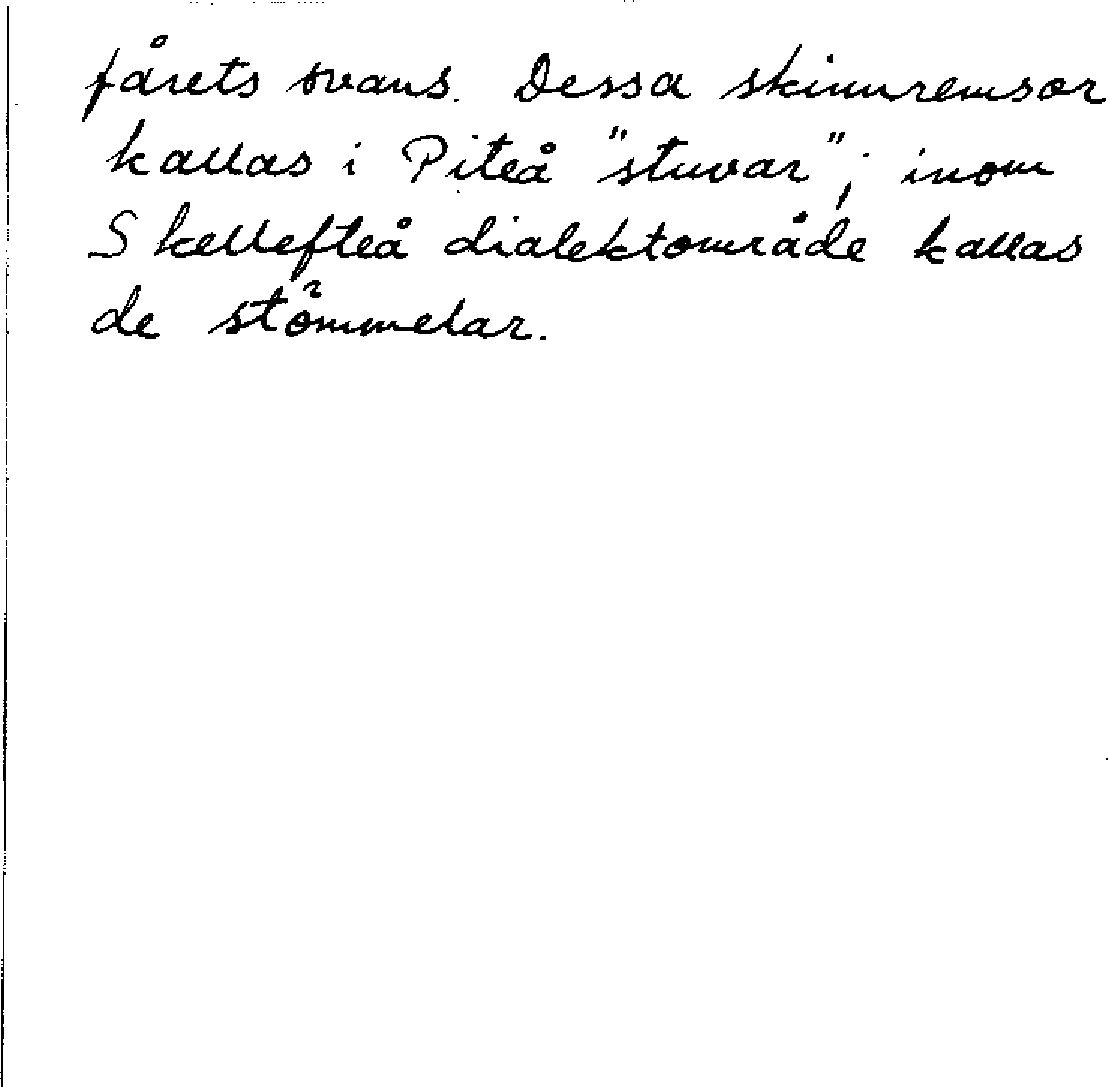 fårets svans. Dessa skinnremsor
kallas i Piteå "stuvar"; inom
Skellefteå dialektområde kallas
de stömmelar.